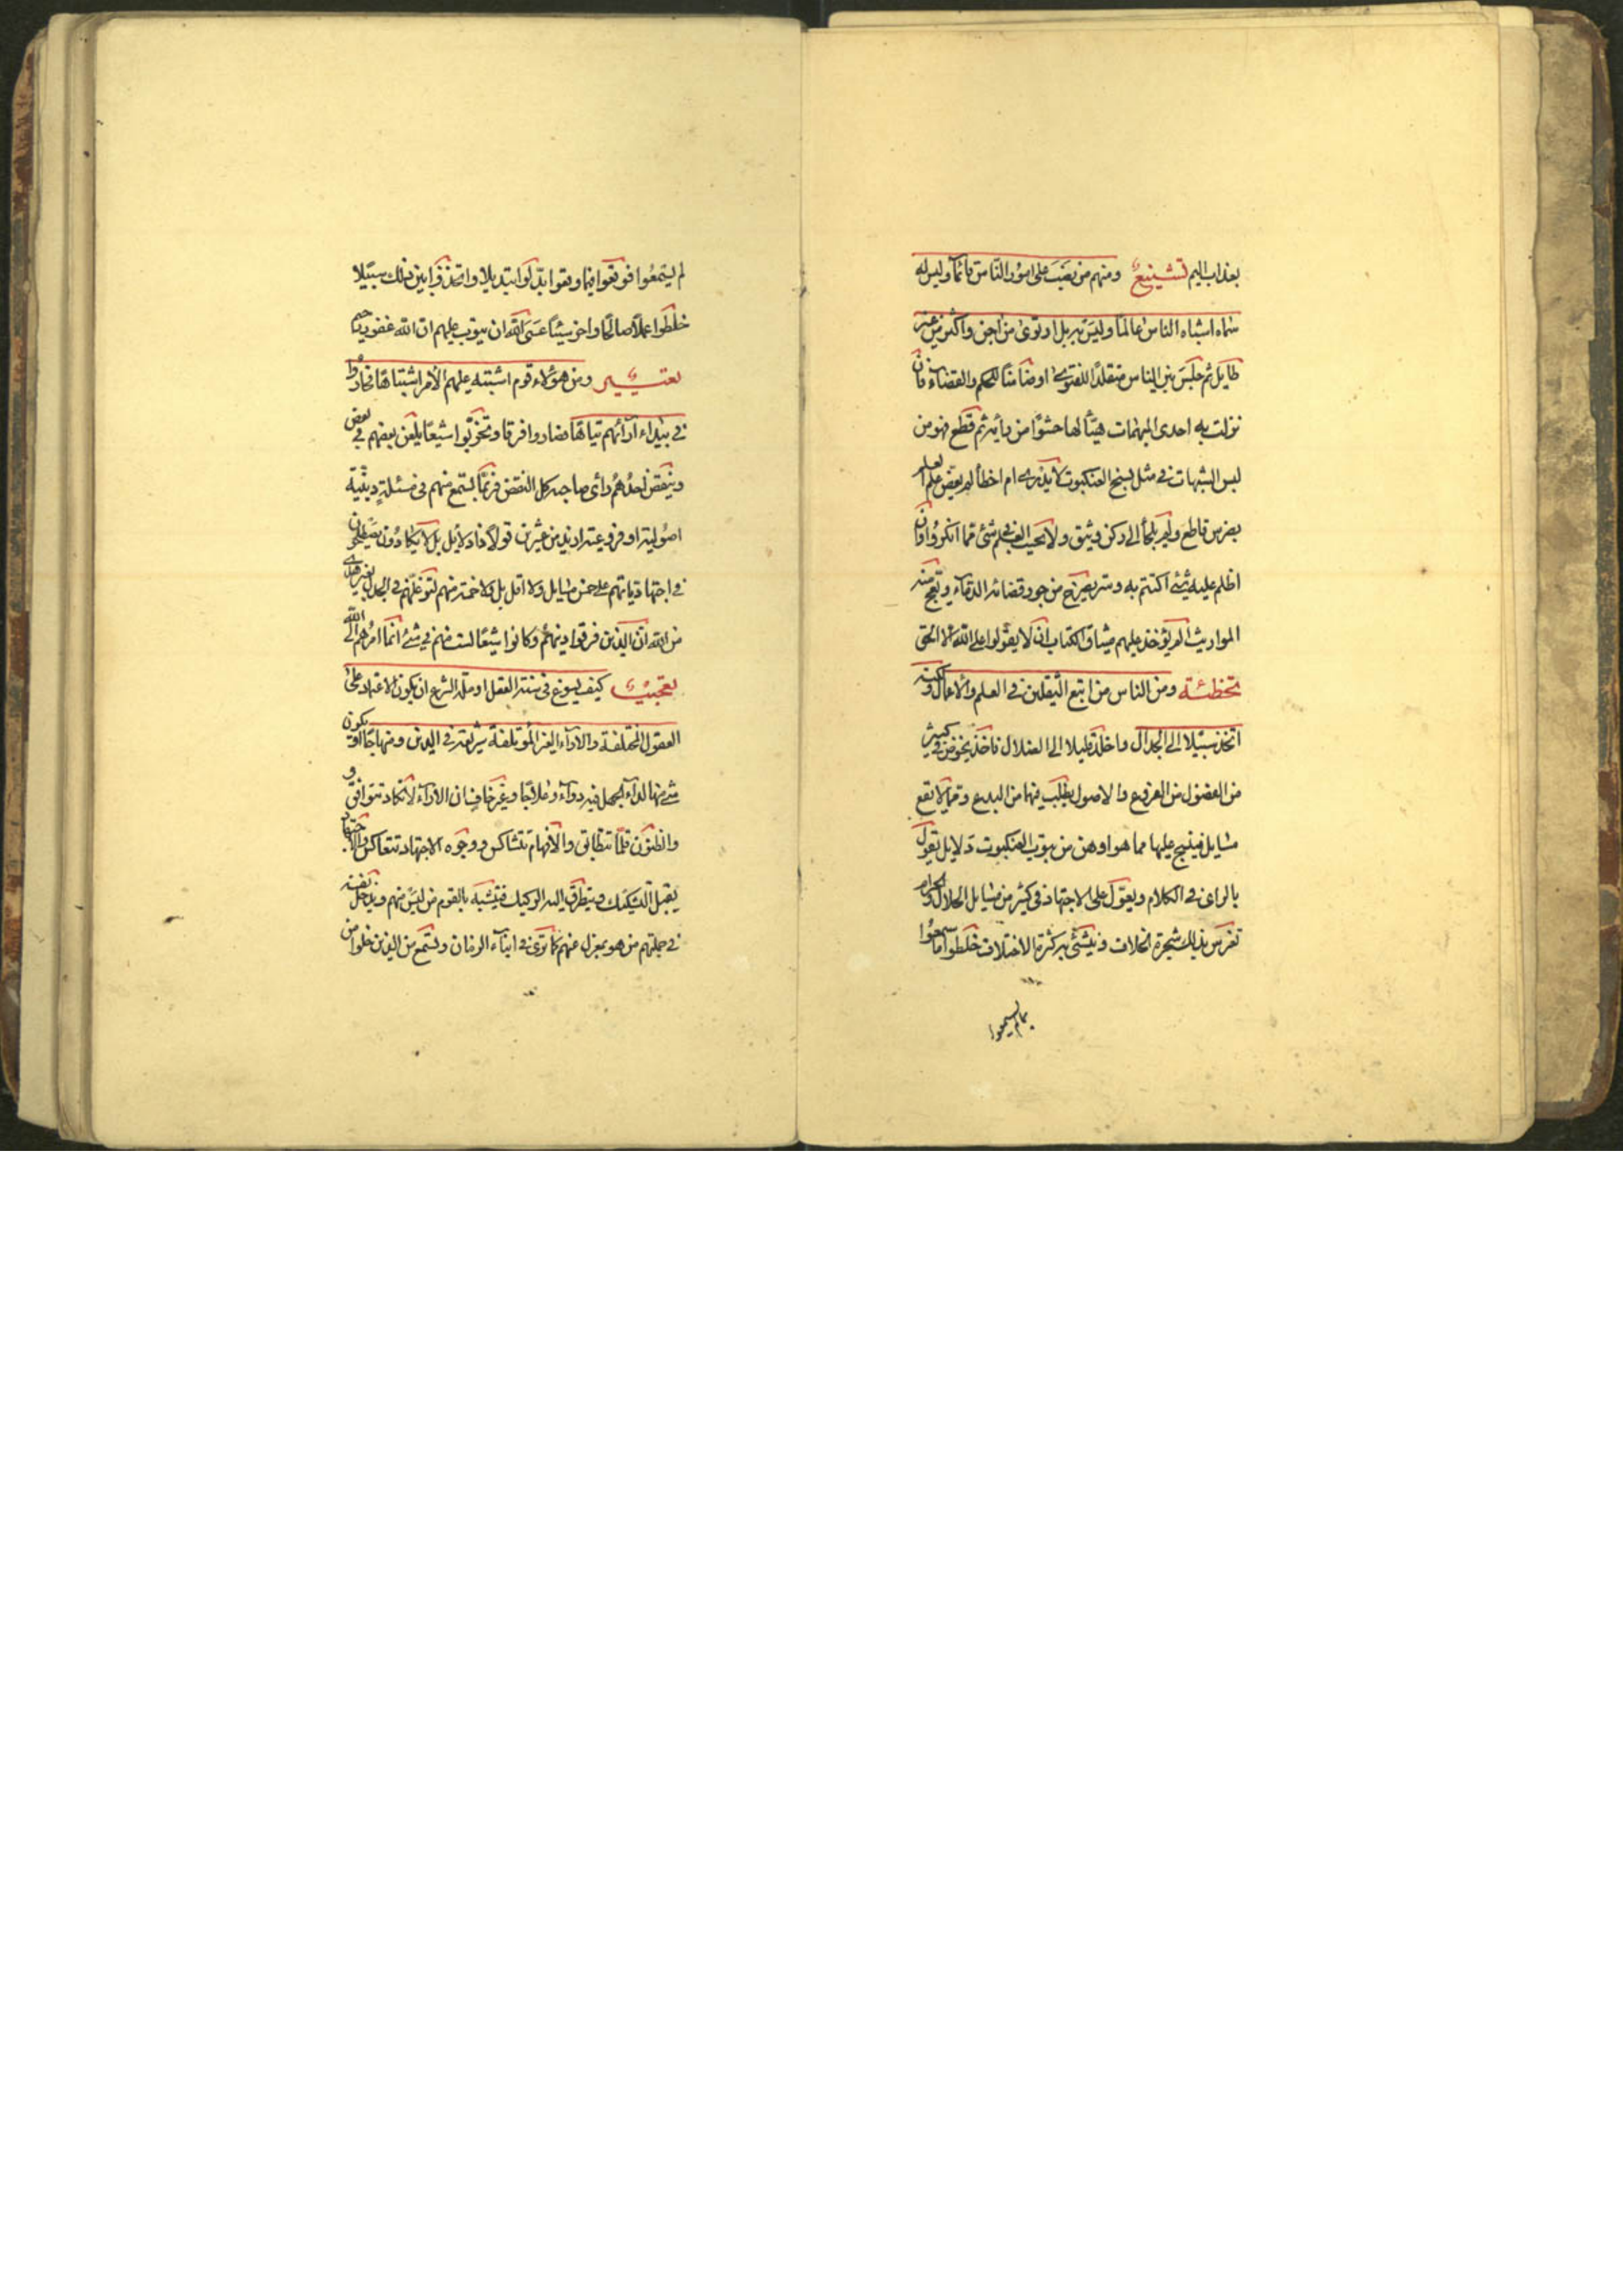 بعذاب اليم تشنيع ومنهم من نصب على امور الناس قائما وليس له
سماه اشباه الناس عالما وليس به بل ارتوى من اجن واكثر من غير
طايل ثم جلس بين الناس متقلدا للفتوى او ضامنا للحكم والقضاء فان
نزلت به احدى المبهمات هيئا لها حشوا من رأيه ثم قطع فهو من
لبس الشبهات في مثل نسج العنكبوت لا يدرى ام اخطأ لم يعض على العلم
بضرس قاطع ولم يلجأ الى ركن وثيق ولا يحسب العلم في شئ مما انكروا وان
اظلم عليه شئ اكتتم به وستر يصرخ من جور قضائه الدماء وتعج منه
المواريث الم يؤخذ عليهم ميثاق الكتاب ان لا يقولوا على الله الا الحق
تخطئة ومن الناس من اتبع الثقلين في العلم والاعمال ولكنه
اتخذ سبيلا الى الجدال واخلد قليلا الى الضلال فاخذ يخوض في كثير
من الفضول من الفروع والاصول يطلب فيها من البدع وقايع لا تقع
مسايل فينسج عليها مما هو اوهن من بيوت العنكبوت دلايل يقول
بالراى في الكلام ويعول على الاجتهاد في كثير من مسايل الحلال والحرام
تغرس بذلك شجرة الخلاف وينشئ به كثرة الاختلاف خلطوا ما سمعوا
بما لم يسمعوا
لم يسمعوا فوقعوا فيما وقعوا بدلوا تبديلا واتخذوا بين ذلك سبيلا
خلطوا عملا صالحا واخر سيئا عسى الله ان يتوب عليهم ان الله غفور رحيم
تعيير ومن هؤلاء قوم اشتبه عليهم الامر اشتباها فحاروا
في بيداء آرائهم تياها فصاروا فرقا وتحزبوا شيعا يلعن بعضهم في بعض
وينقض احدهم رأى صاحبه كل النقض فربما يستمع منهم في مسئلة دينية
اصولية او فروعية ازيد من عشرين قولا ذا دلايل بل لا يكادون يصطلحون
في اجتهادياتهم على خمس مسايل ولا اقل بل ولا خمسة منهم لتوغلهم في الجدل بغير هدى
من الله ان الذين فرقوا دينهم وكانوا شيعا لست منهم في شئ انما امرهم الى الله
تعجيب كيف يسوغ في سنة العقل او ملة الشرع ان يكون الاعتماد على
العقول المختلفة والاراء الغير المؤتلفة شريعة في الدين ومنهاجا او يكون
شئ منها لداء الجهل فيه دواء وعلاجا وغير خاف ان الاراء لا تكاد تتوافق و
والظنون قلما تتطابق والافهام تتشاكس ووجوه الاجتهاد تتعاكس والاجتهاد
يقبل التشكيك ويتطرق اليه الركيك فيتشبه بالقوم من ليس منهم ويدخل نفسه
في جملتهم من هو بمعزل عنهم كما ترى في ابناء الزمان ونسمع من الذين خلوا من